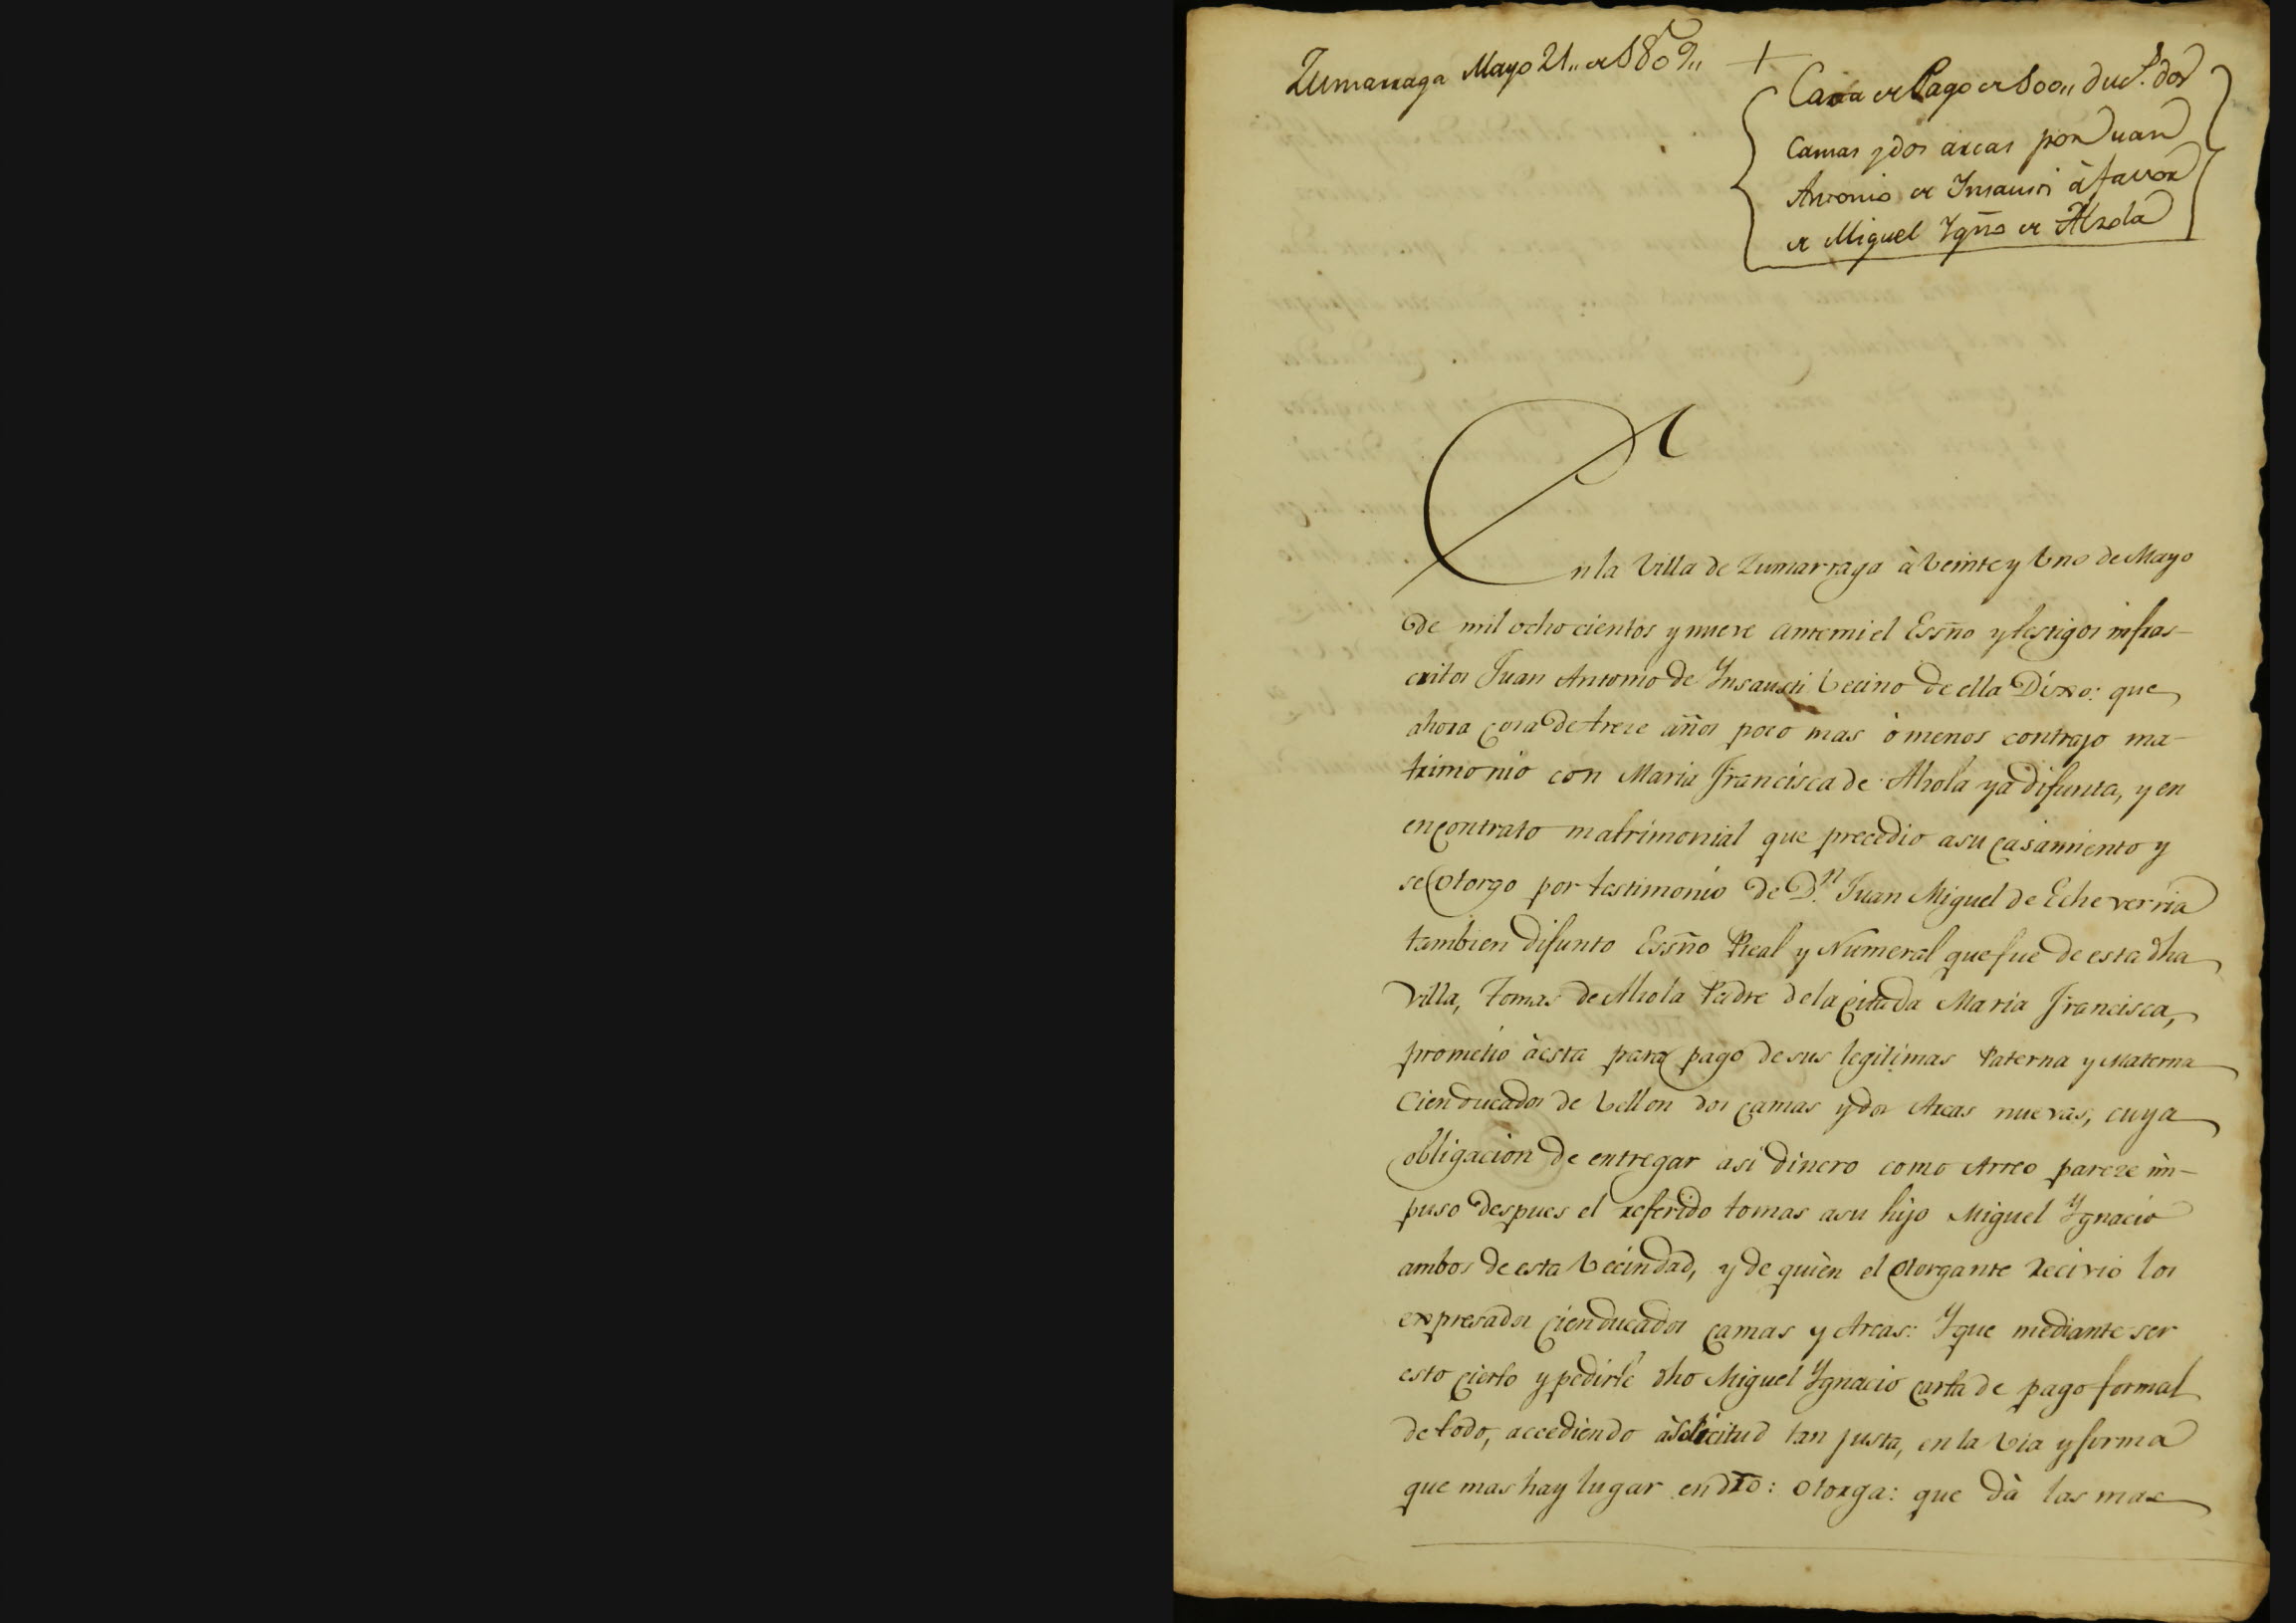 Zumarraga Mayo 21,, de 1809,, +
Carta de Pago de 100,, duc.s dos
camas y dos arcas por Juan
Antonio de Insausti à favor
de Miguel Ygno de Alzola
En la Villa de Zumarraga à Veinte y Uno de Mayo
de mil ocho cientos y nueve ante mi el Essno y testigos infras-
critos Juan Antonio de Ynsausti Vecino de ella Dixo: que
ahora cosa de trece años poco mas ò menos contrajo ma-
trimonio con Maria Francisca de Alzola ya difunta, y en
en contrato matrimonial que precedio a su casamiento y
se Otorgo por testimonio de D.n Juan Miguel de Echeverria
tambien difunto Essño Real y Numeral que fue de esta dha
Villa, Tomas de Alzola Padre de la citada Maria Francisca,
prometio à esta para pago de sus legitimas Paterna y Materna
Cien ducados de Vellon dos camas y dos Arcas nuevas, cuya
obligacion de entregar asi dinero como Arreo pareze im-
puso despues el referido tomas a su hijo Miguel Ygnacio
ambos de esta Vecindad, y de quièn el Otorgante recivio los
expresados cien ducados camas y Arcas: Y que mediante ser
esto cierto y pedirle dho Miguel Ygnacio carta de pago formal
de todo, accediendo à solicitud tan justa, en la Via y forma
que mas hay lugar en dro: Otorga: que dà las mas